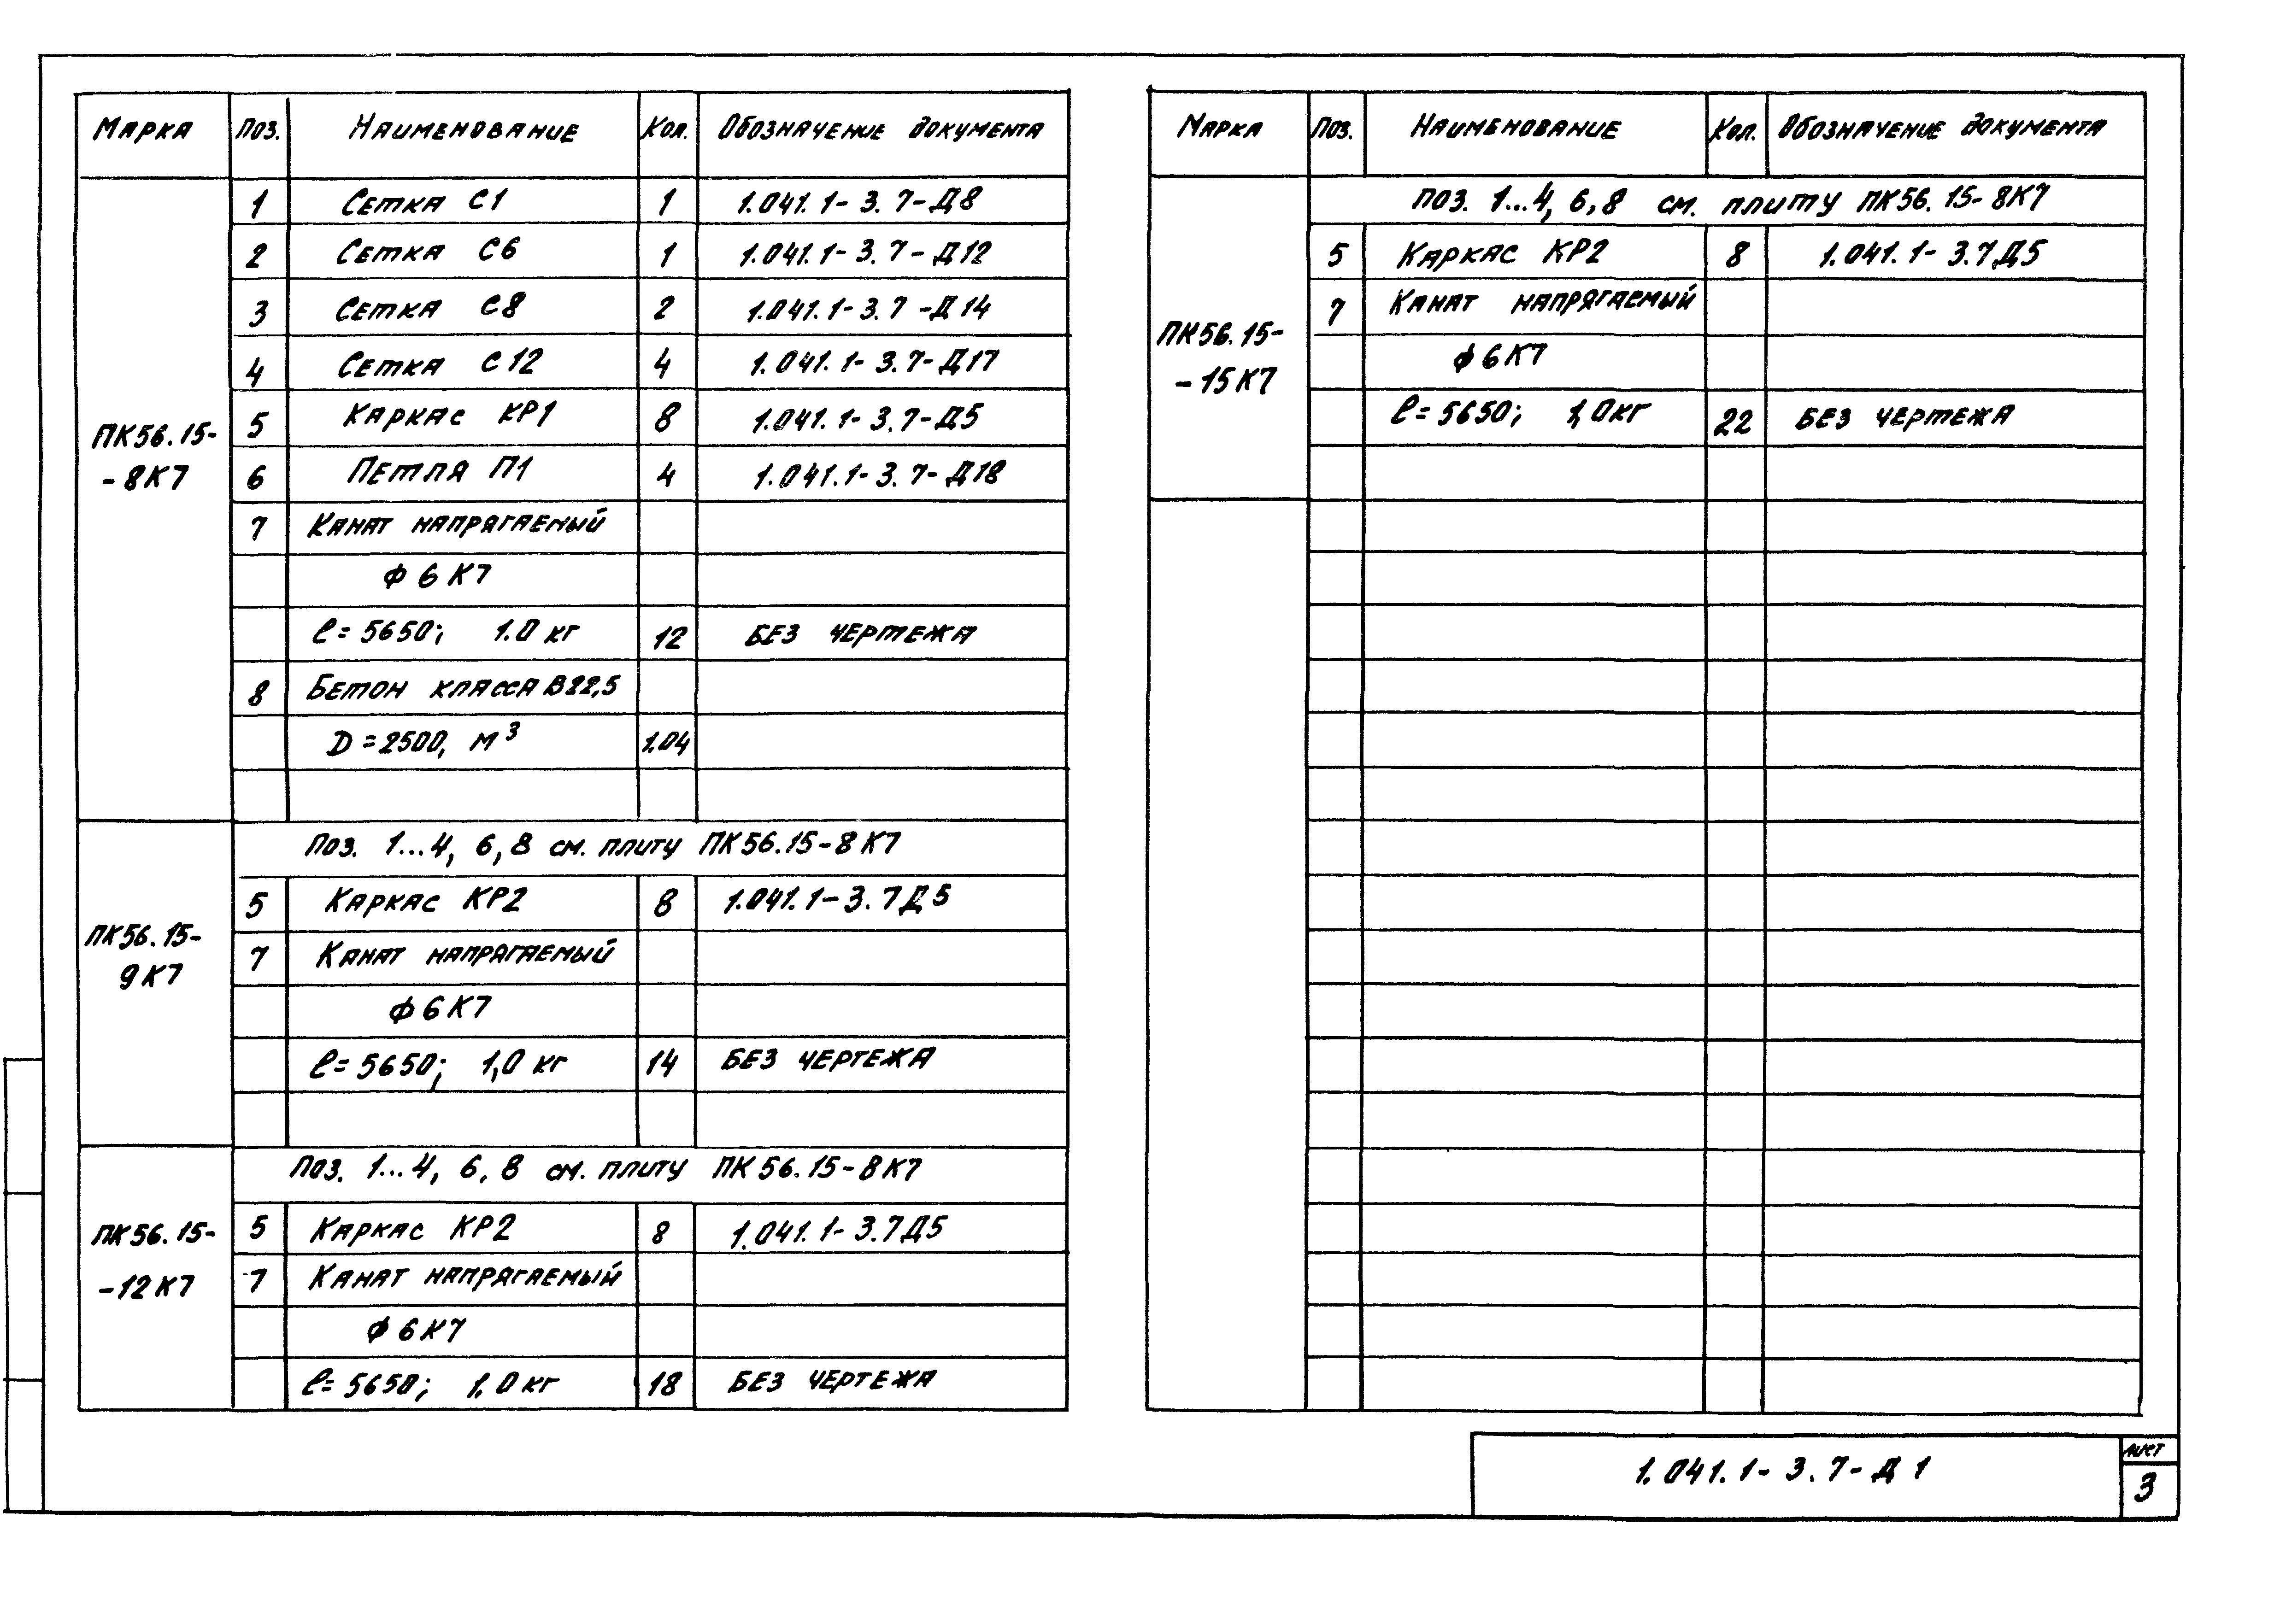 Марка Поз. Наименование Кол. Обозначение документа
1 Сетка С1 1 1.041.1-3.7-Д8
2 Сетка С6 1 1.041.1-3.7-Д12
3 Сетка С8 2 1.041.1-3.7-Д14
4 Сетка С12 4 1.041.1-3.7-Д17
ПК56.15-
-8К7
5 Каркас КР1 8 1.041.1-3.7-Д5
6 Петля П1 4 1.041.1-3.7-Д18
7 Канат напрягаемый
ф 6 К7
ℓ=5650; 1.0 кг 12 БЕЗ ЧЕРТЕЖА
8 Бетон класса В22,5
D=2500, м³ 1.04
Поз. 1...4, 6,8 см. плиту ПК56.15-8К7
ПК56.15-
9К7
5 Каркас КР2 8 1.041.1-3.7Д5
7 Канат напрягаемый
ф 6К7
ℓ=5650; 1,0 кг 14 БЕЗ ЧЕРТЕЖА
Поз. 1...4, 6,8 см. плиту ПК56.15-8К7
ПК56.15-
-12К7
5 Каркас КР2 8 1.041.1-3.7Д5
7 Канат напрягаемый
ф 6К7
ℓ=5650; 1,0 кг 18 БЕЗ ЧЕРТЕЖА
Марка Поз. Наименование Кол. Обозначение документа
поз. 1...4, 6,8 см. плиту ПК56.15-8К7
ПК56.15-
-15К7
5 Каркас КР2 8 1.041.1-3.7Д5
7 Канат напрягаемый
ф 6К7
ℓ=5650; 1,0кг 22 БЕЗ ЧЕРТЕЖА
1.041.1-3.7-Д1
лист
3